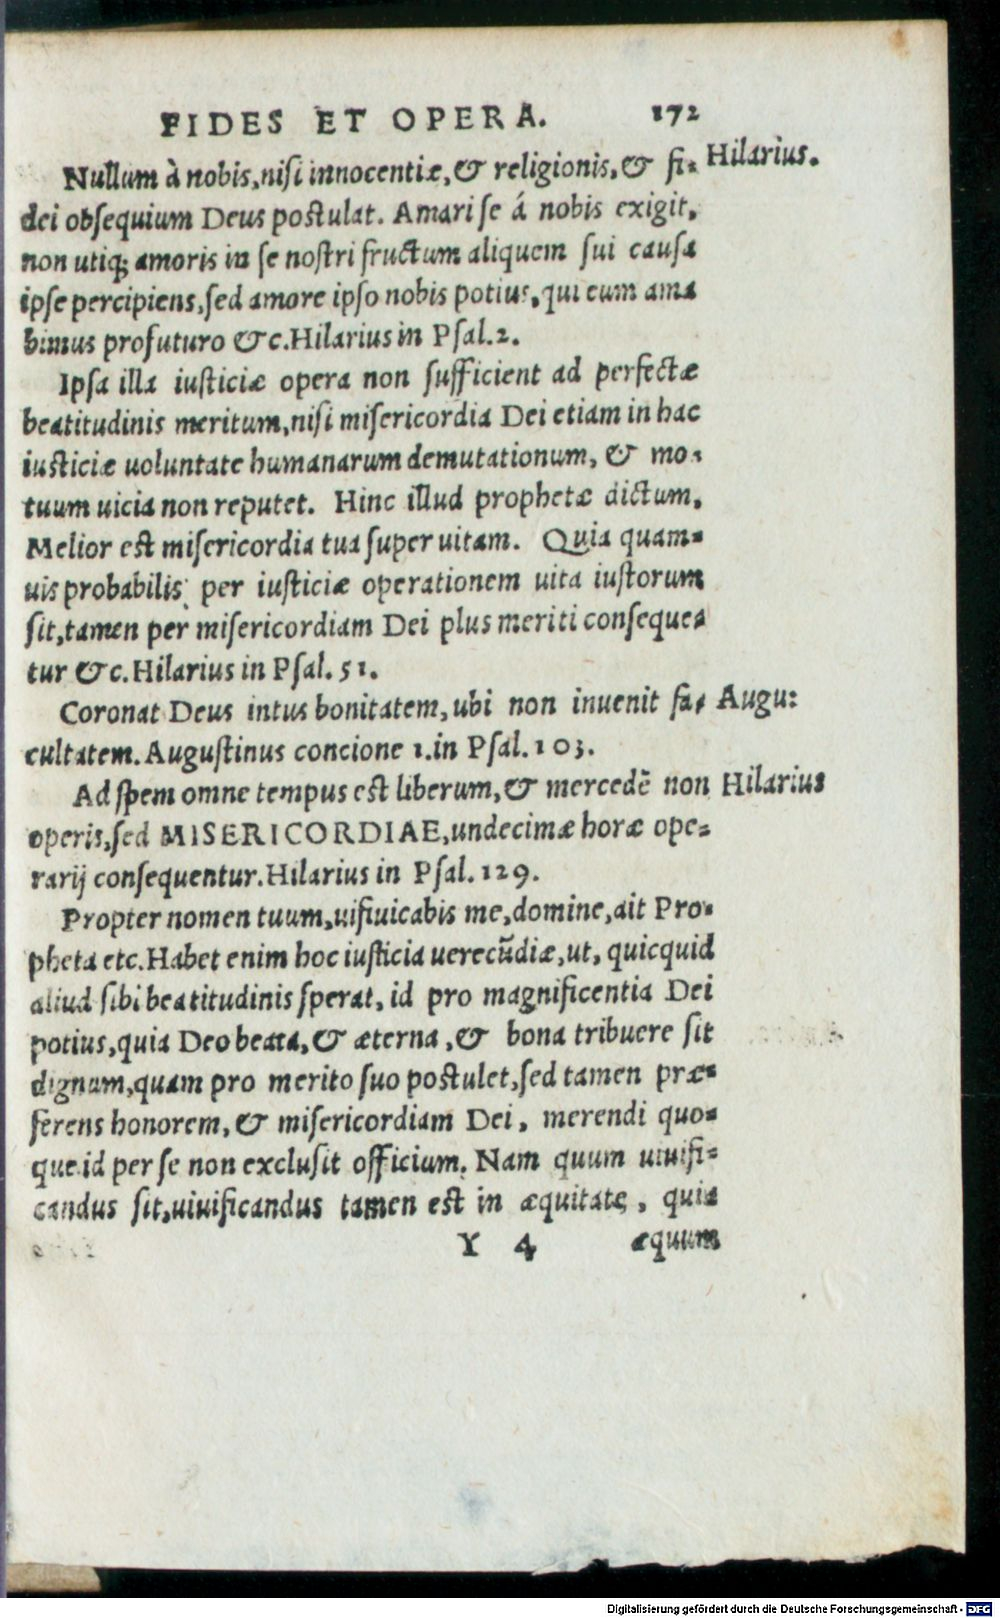 FIDES ET OPERA. 172
Nullum à nobis, nisi innocentiæ, & religionis, & fi- Hilarius.
dei obsequium Deus postulat. Amari se á nobis exigit,
non utiq; amoris in se nostri fructum aliquem sui causa
ipse percipiens, sed amore ipso nobis potius, qui eum ama
bimus profuturo &c. Hilarius in Psal. 2.
Ipsa illa iusticiæ opera non sufficient ad perfectæ
beatitudinis meritum, nisi misericordia Dei etiam in hac
iusticiæ uoluntate humanarum demutationum, & mo-
tuum uicia non reputet. Hinc illud prophetæ dictum,
Melior est misericordia tua super uitam. Quia quam-
uis probabilis per iusticiæ operationem uita iustorum
sit, tamen per misericordiam Dei plus meriti conseque-
tur &c. Hilarius in Psal. 51.
Coronat Deus intus bonitatem, ubi non inuenit fa- Augu:
cultatem. Augustinus concione 1. in Psal. 103.
Ad spem omne tempus est liberum, & mercedē non Hilarius
operis, sed MISERICORDIAE, undecimæ horæ ope-
rarij consequentur. Hilarius in Psal. 129.
Propter nomen tuum, uifiuicabis me, domine, ait Pro-
pheta etc. Habet enim hoc iusticia uerecūdiæ, ut, quicquid
aliud sibi beatitudinis sperat, id pro magnificentia Dei
potius, quia Deo beata, & æterna, & bona tribuere sit
dignum, quam pro merito suo postulet, sed tamen præ-
ferens honorem, & misericordiam Dei, merendi quo-
que id per se non exclusit officium. Nam quum uiuifi-
candus sit, uiuificandus tamen est in æquitate, quia
Y 4 æquum
Digitalisierung gefördert durch die Deutsche Forschungsgemeinschaft - DFG